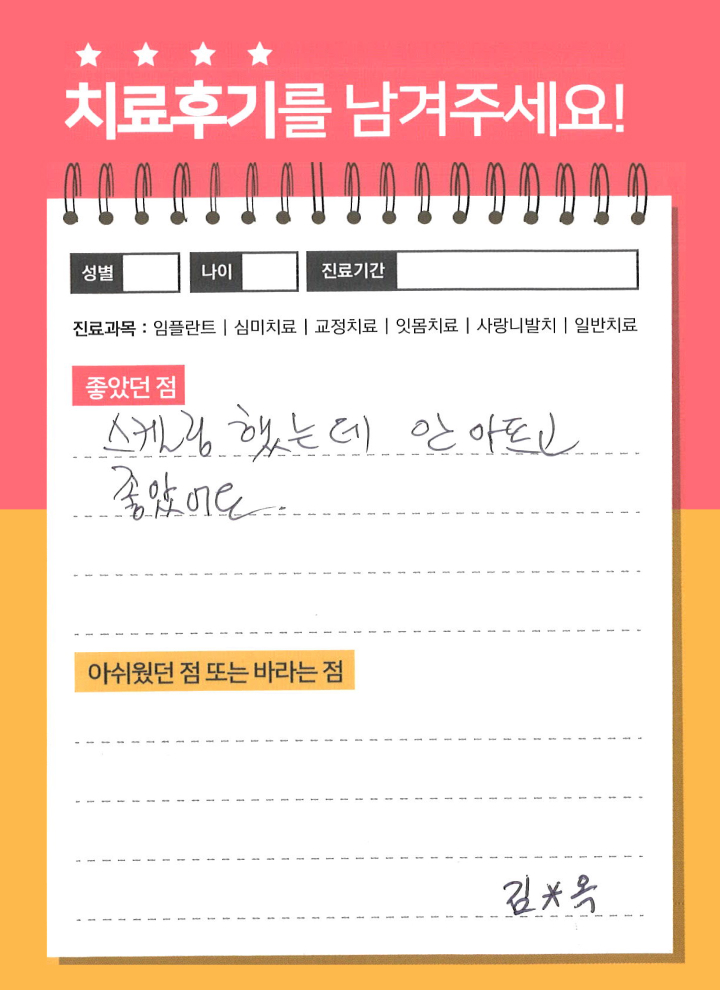 치료후기를 남겨주세요!
성별 나이 진료기간
진료과목 : 임플란트 | 심미치료 | 교정치료 | 잇몸치료 | 사랑니발치 | 일반치료
좋았던 점
스케링 했는데 안 아프고
좋았어요.
아쉬웠던 점 또는 바라는 점
김*옥